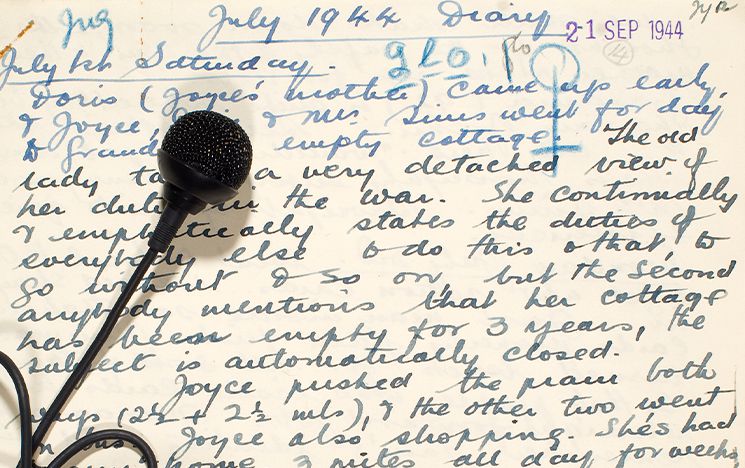 July 1944 Diary
21 SEP 1944
14
July 1st Saturday.
Doris (Joyce's mother) came up early,
& Joyce, & Mrs Sims went for day
to Grand empty cottage. The old
lady ta a very detached view of
her duty in the war. She continually
& emphatically states the duties of
everybody else to do this & that, to
go without & so on, but the second
anybody mentions that her cottage
has been empty for 3 years, the
subject is automatically closed.
Joyce pushed the pram both
ways (2½ + 2½ mls), & the other two went
Joyce also shopping. She's had
home 3 miles all day for weeks